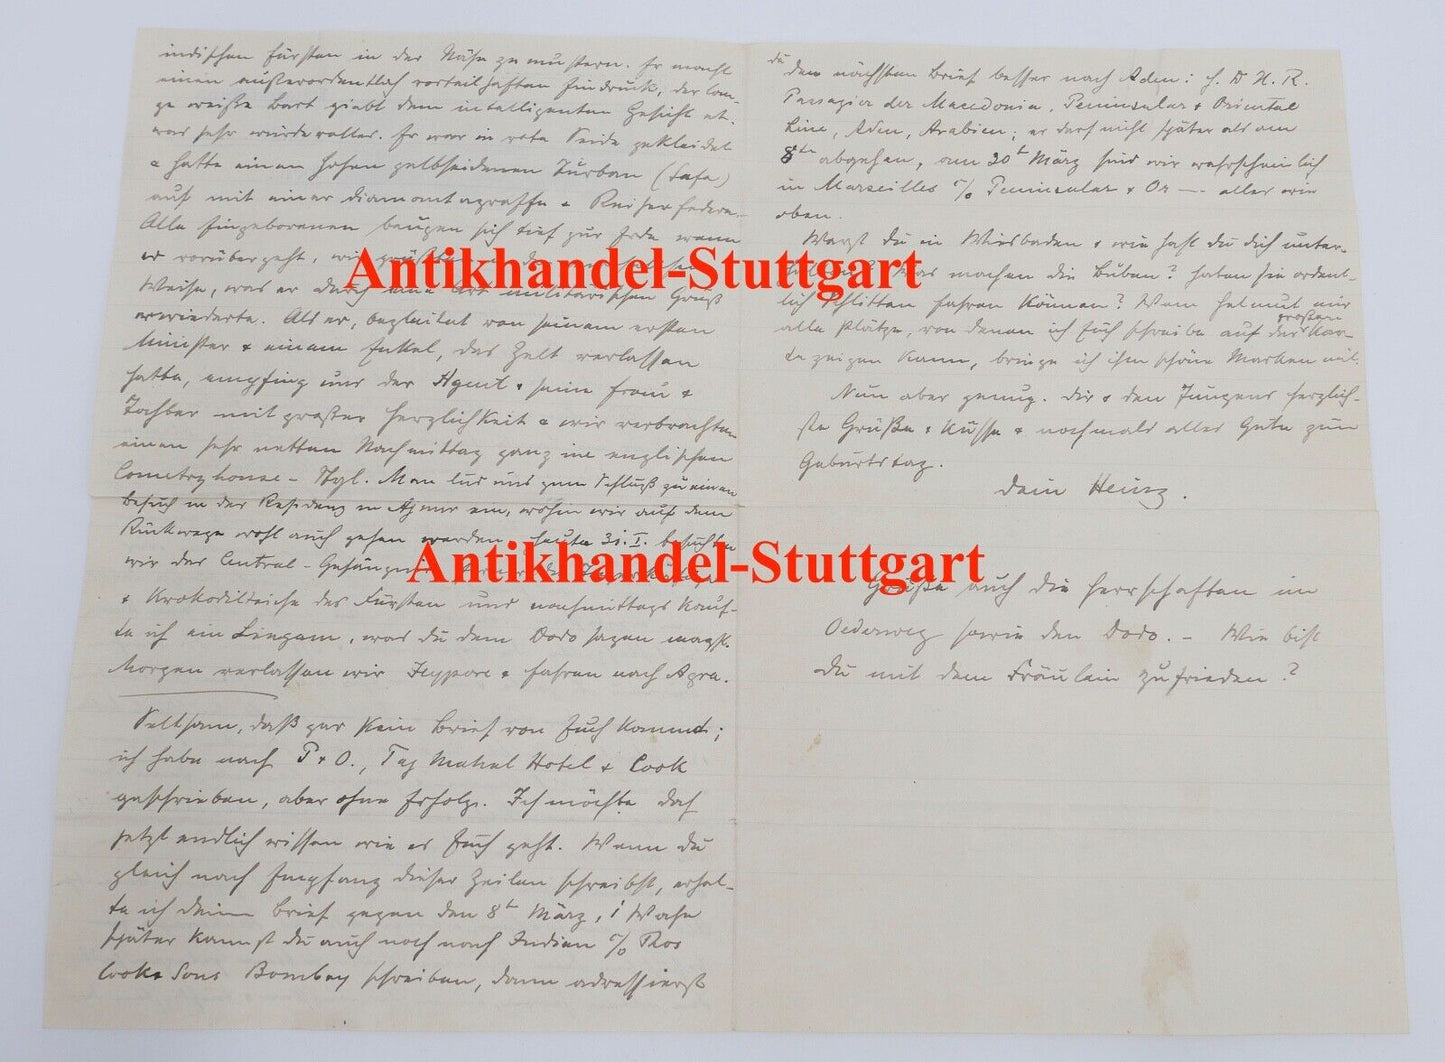 indischen Fürsten in der Nähe zu mustern. Er macht
einen außerordentlich vorteilhaften Eindruck, der lan-
ge weiße Bart giebt dem intelligenten Gesicht et-
was sehr würdevolles. Er war in rote Seide gekleidet
& hatte einen hohen gelbseidenen Turban (Safa)
auf mit einer Diamantagraffe & Reiherfedern.
Alle Eingeborenen beugen sich tief zur Erde wenn
er vorübergeht, wir grüßten
Weise, was er durch eine Art militärischen Gruß
erwiederte. Als er, begleitet von seinem ersten
Minister & einem Enkel, das Zelt verlassen
hatte, empfing uns der Agent & seine Frau &
Tochter mit großer Herzlichkeit & wir verbrachten
einen sehr netten Nachmittag ganz im englischen
Countryhouse - Styl. Man lud uns zum Schluß zu einem
Besuch in der Residenz in Ajmer ein, wohin wir auf dem
Rückwege wohl auch gehen werden. Heute 31. I. besuchten
wir das Central-Gefängnis
& Krokodilteiche des Fürsten und nachmittags kauf-
te ich ein Lingam, was du dem Dodo sagen magst.
Morgen verlassen wir Jeypore & fahren nach Agra.
Seltsam, daß gar kein Brief von Euch kommt;
ich habe nach P & O., Taj Mahal Hotel & Cook
geschrieben, aber ohne Erfolg. Ich möchte doch
jetzt endlich wissen wie es Euch geht. Wenn du
gleich nach Empfang dieser Zeilen schreibst, erhal-
te ich deinen Brief gegen den 8t März, 1 Woche
später kannst du auch noch nach Indien c/o Thos
Cook & Sons Bombay schreiben, dann adressierst
du
den nächsten Brief besser nach Aden: H. D. H. R.
Passagier der Macedonia, Peninsular & Oriental
Line, Aden, Arabien; er darf nicht später als am
8ten abgehen, am 20t März sind wir wahrscheinlich
in Marseilles c/o Peninsular & Or — alles wie
oben.
Warst du in Wiesbaden & wie hast du dich unter-
halten? Was machen die Buben? Haben sie ordent-
lich Schlitten fahren können? Wenn Helmut mir
alle Plätze, von denen ich Euch schreibe auf der großen Kar-
te zeigen kann, bringe ich ihm schöne Marken mit.
Nun aber genug. Dir & den Jungens herzlich-
ste Grüße & Küsse & nochmals alles Gute zum
Geburtstag.
Dein Heinz.
Grüße auch die Herrschaften im
Oederweg sowie den Dodo. - Wie bist
du mit dem Fräulein zufrieden?
Antikhandel-Stuttgart
Antikhandel-Stuttgart